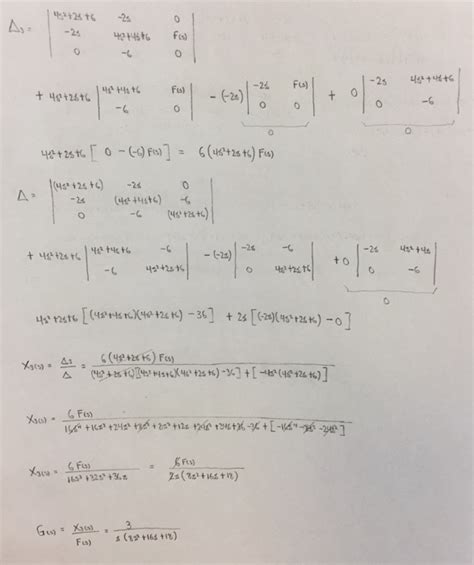 Δ₃ = | 4s²+2s+6  -2s  0 |
| -2s  4s²+4s+6  F(s) |
| 0  -6  0 |
+ 4s²+2s+6 | 4s²+4s+6  F(s) | - (-2s) | -2s  F(s) | + 0 | -2s  4s²+4s+6 |
| -6  0 | | 0  0 | | 0  -6 |
0 0
4s²+2s+6 [ 0 - (-6) F(s) ] = 6(4s²+2s+6) F(s)
Δ = | (4s²+2s+6)  -2s  0 |
| -2s  (4s²+4s+6)  -6 |
| 0  -6  (4s²+2s+6) |
+ 4s²+2s+6 | 4s²+4s+6  -6 | - (-2s) | -2s  -6 | + 0 | -2s  4s²+4s |
| -6  4s²+2s+6 | | 0  4s²+2s+6 | | 0  -6 |
0
4s²+2s+6 [(4s²+4s+6)(4s²+2s+6) - 36] + 2s [(-2s)(4s²+2s+6) - 0]
X₃(s) = Δ₃/Δ = 6(4s²+2s+6) F(s) / (4s²+2s+6)[(4s²+4s+6)(4s²+2s+6) - 36] + [-4s²(4s²+2s+6)]
X₃(s) = 6 F(s)
X₃(s) = 6 F(s) / 16s³+32s²+36s = 6 F(s) / 2s(8s²+16s+18)
G(s) = X₃(s)/F(s) = 3 / s(8s²+16s+18)